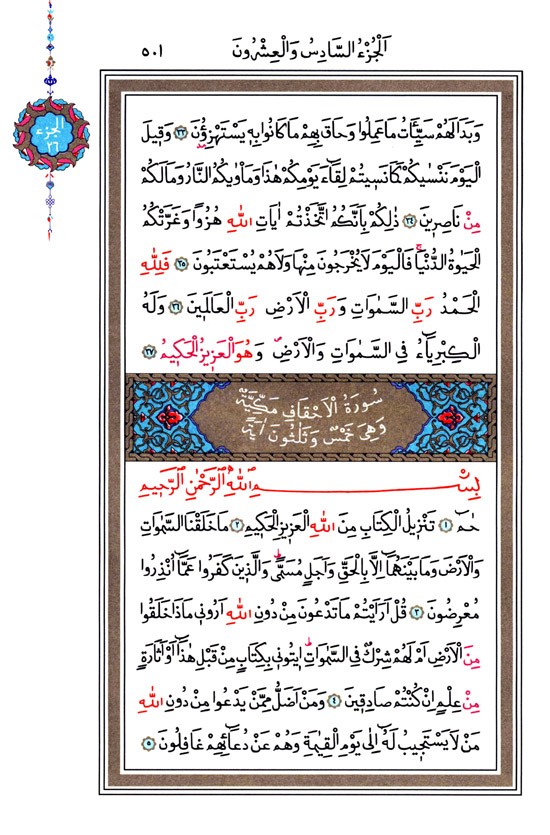 اَلْجُزْءُ السَّادِسُ وَالْعِشْرُونَ
٥٠١
الجزء
٢٦
وَبَدَا لَهُمْ سَيِّـَٔاتُ مَا عَمِلُوا وَحَاقَ بِهِمْ مَا كَانُوا بِهِ يَسْتَهْزِؤُنَ ﴿٣٣﴾ وَقِيلَ
الْيَوْمَ نَنْسٰيكُمْ كَمَا نَسِيتُمْ لِقَٓاءَ يَوْمِكُمْ هٰذَا وَمَأْوٰيكُمُ النَّارُ وَمَا لَكُمْ
مِنْ نَاصِرِينَ ﴿٣٤﴾ ذٰلِكُمْ بِاَنَّكُمُ اتَّخَذْتُمْ اٰيَاتِ اللّٰهِ هُزُوًا وَغَرَّتْكُمُ
الْحَيٰوةُ الدُّنْيَا فَالْيَوْمَ لَا يُخْرَجُونَ مِنْهَا وَلَا هُمْ يُسْتَعْتَبُونَ ﴿٣٥﴾ فَلِلّٰهِ
الْحَمْدُ رَبِّ السَّمٰوَاتِ وَرَبِّ الْاَرْضِ رَبِّ الْعَالَمِينَ ﴿٣٦﴾ وَلَهُ
الْكِبْرِيَٓاءُ فِي السَّمٰوَاتِ وَالْاَرْضِ وَهُوَ الْعَزِيزُ الْحَكِيمُ ﴿٣٧﴾
سُورَةُ الْاَحْقَافِ مَكِّيَّةٌ
وَهِيَ خَمْسٌ وَثَلٰثُونَ اٰيَةً
بِسْمِ اللّٰهِ الرَّحْمٰنِ الرَّحِيمِ
حٰمٓ ﴿١﴾ تَنْزِيلُ الْكِتَابِ مِنَ اللّٰهِ الْعَزِيزِ الْحَكِيمِ ﴿٢﴾ مَا خَلَقْنَا السَّمٰوَاتِ
وَالْاَرْضَ وَمَا بَيْنَهُمَٓا اِلَّا بِالْحَقِّ وَاَجَلٍ مُسَمًّى وَالَّذِينَ كَفَرُوا عَمَّٓا اُنْذِرُوا
مُعْرِضُونَ ﴿٣﴾ قُلْ اَرَاَيْتُمْ مَا تَدْعُونَ مِنْ دُونِ اللّٰهِ اَرُونِي مَاذَا خَلَقُوا
مِنَ الْاَرْضِ اَمْ لَهُمْ شِرْكٌ فِي السَّمٰوَاتِ اِيتُونِي بِكِتَابٍ مِنْ قَبْلِ هٰذَٓا اَوْ اَثَارَةٍ
مِنْ عِلْمٍ اِنْ كُنْتُمْ صَادِقِينَ ﴿٤﴾ وَمَنْ اَضَلُّ مِمَّنْ يَدْعُوا مِنْ دُونِ اللّٰهِ
مَنْ لَا يَسْتَجِيبُ لَهُٓ اِلٰى يَوْمِ الْقِيٰمَةِ وَهُمْ عَنْ دُعَٓائِهِمْ غَافِلُونَ ﴿٥﴾